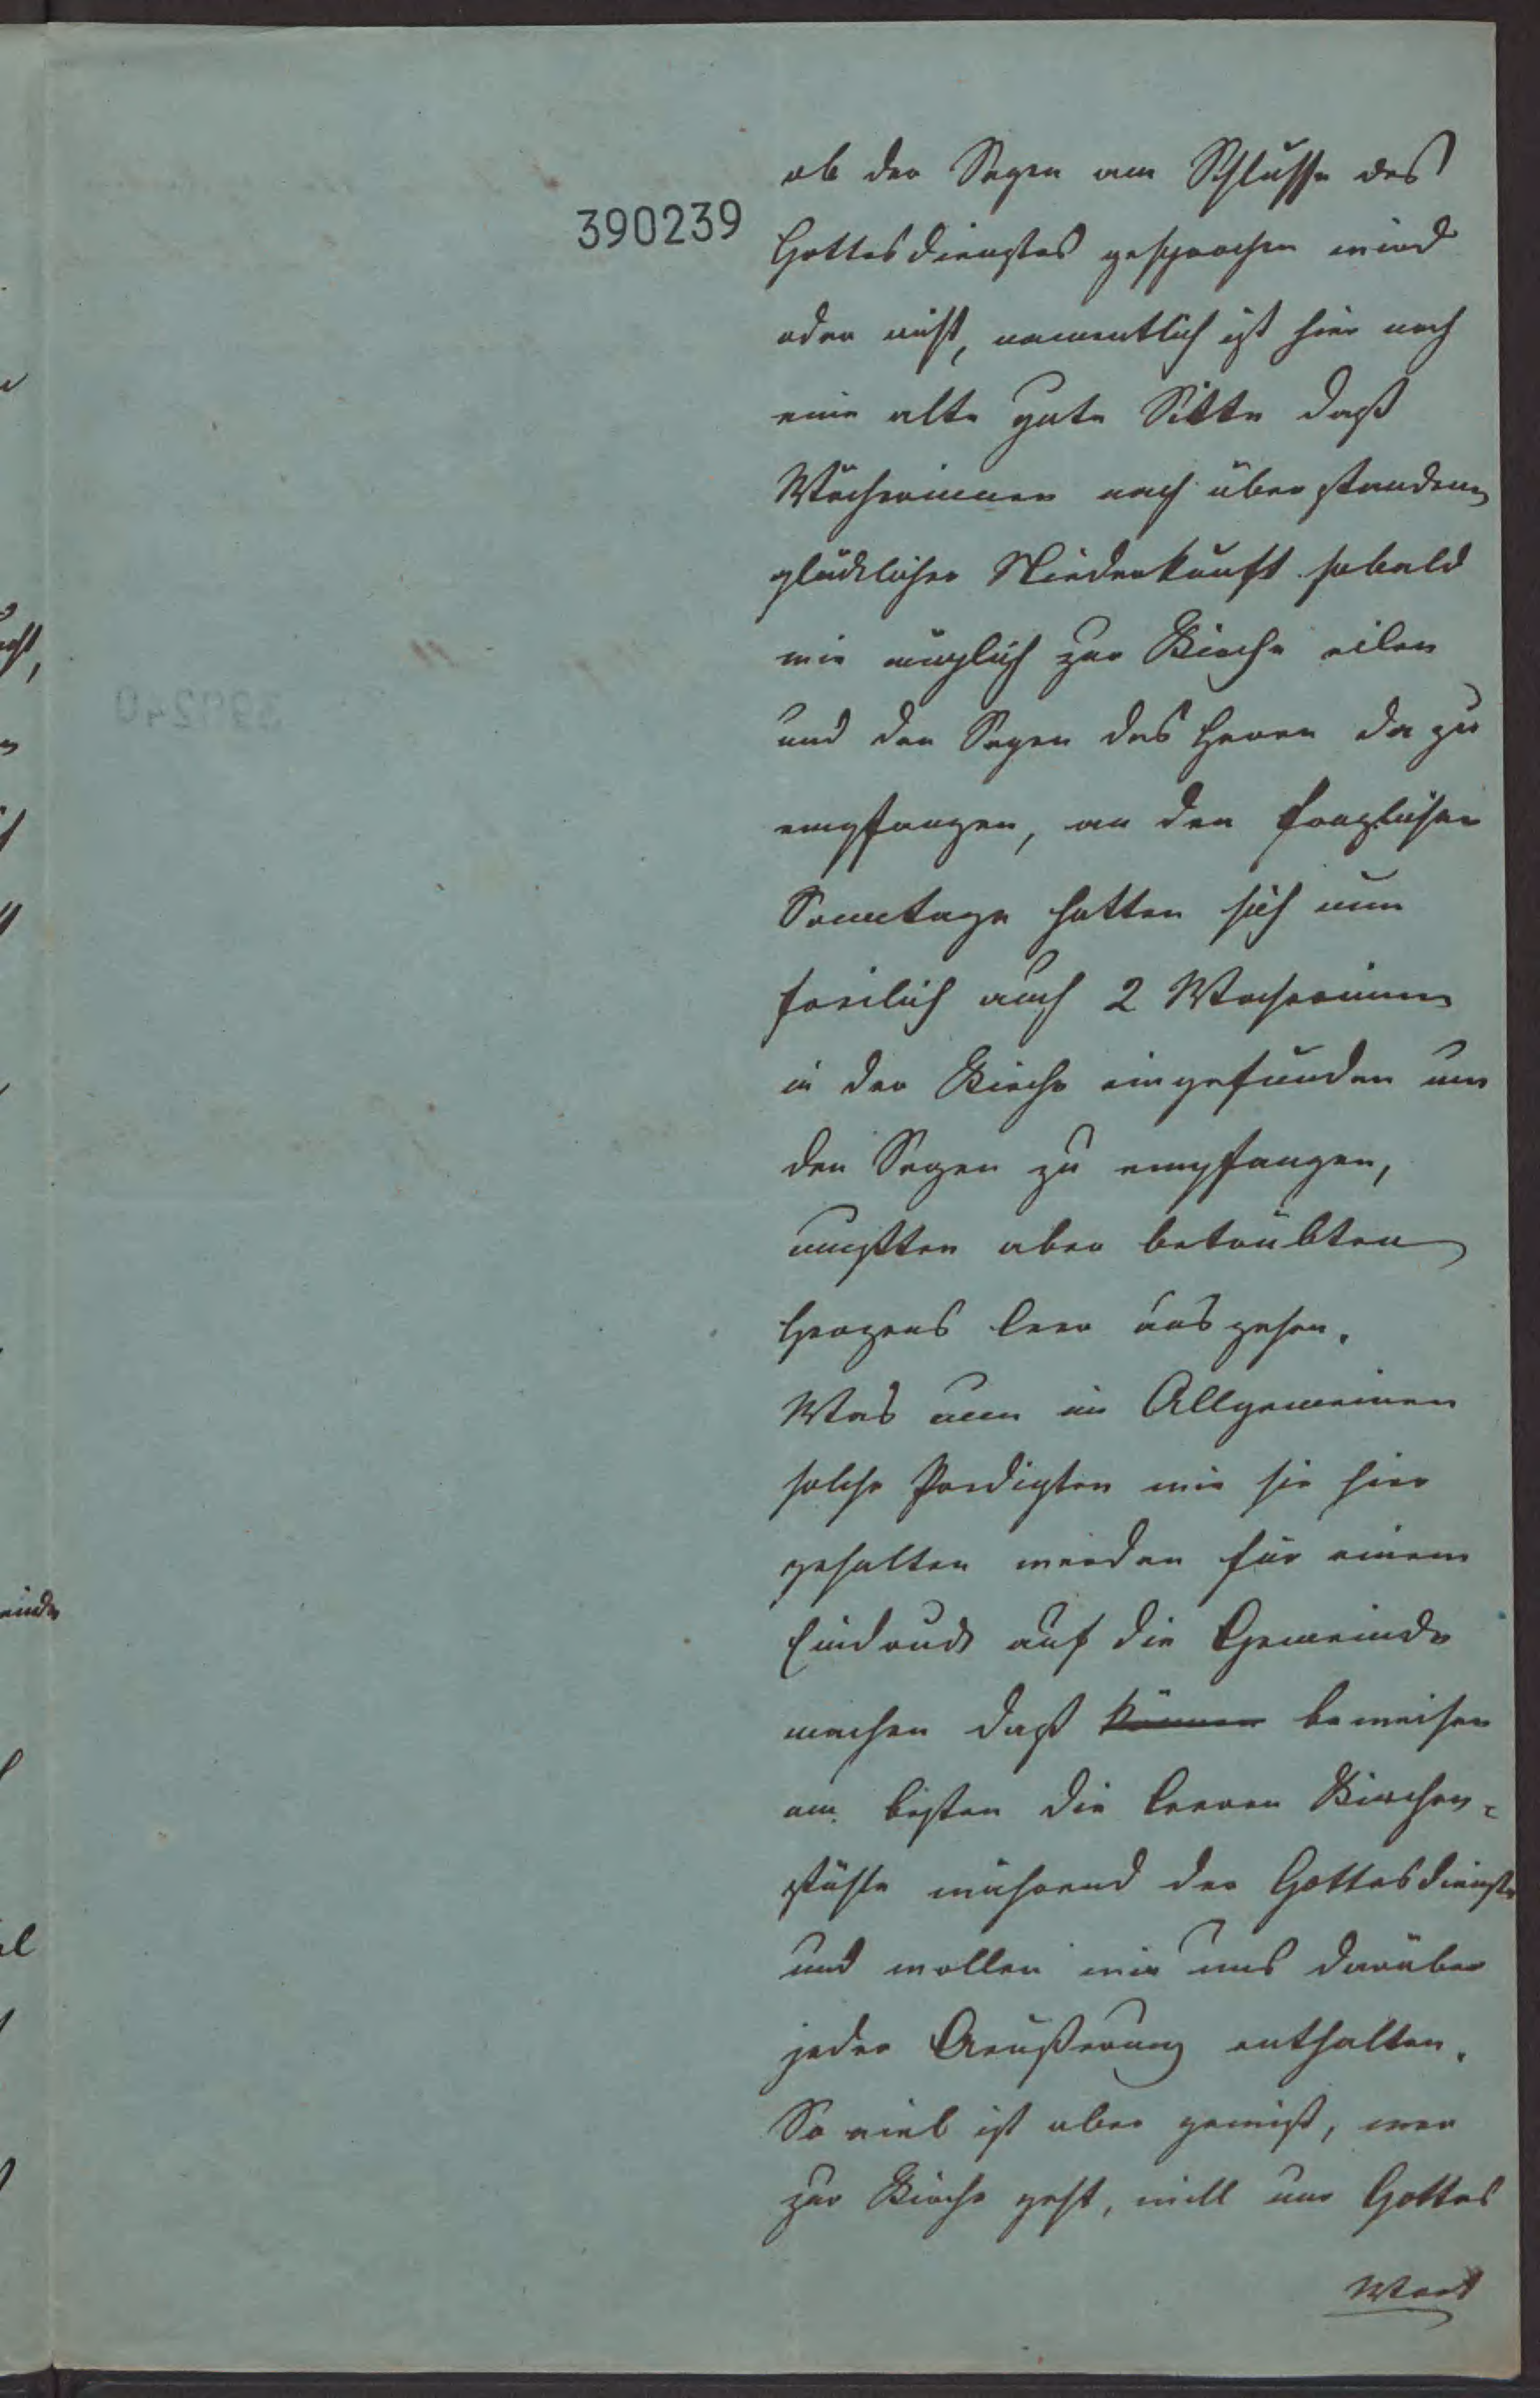 390239
ob der Segen am Schlusse des
Gottesdienstes gesprochen wird
oder nicht, namentlich ist hier noch
eine alte gute Sitte daß
Wöchnerinnen nach überstandener
glücklicher Niederkunft sobald
wie möglich zur Kirche eilen
und den Segen des Herrn da zu
empfangen, an den fraglichen
Sonntage hatten sich nun
freilich auch 2 Wöchnerinnen
in der Kirche eingefunden um
den Segen zu empfangen,
mußten aber betrübten
Herzens leer ausgehen.
Was nun im Allgemeinen
solche Predigten wie sie hier
gehalten werden für einen
Eindruck auf die Gemeinde
machen daß können beweisen
am besten die leeren Kirchen-
stühle während der Gottesdienste
und wollen wir uns darüber
jeder Aeußerung enthalten.
So viel ist aber gewiß, wer
zur Kirche geht, will nur Gottes
Wort